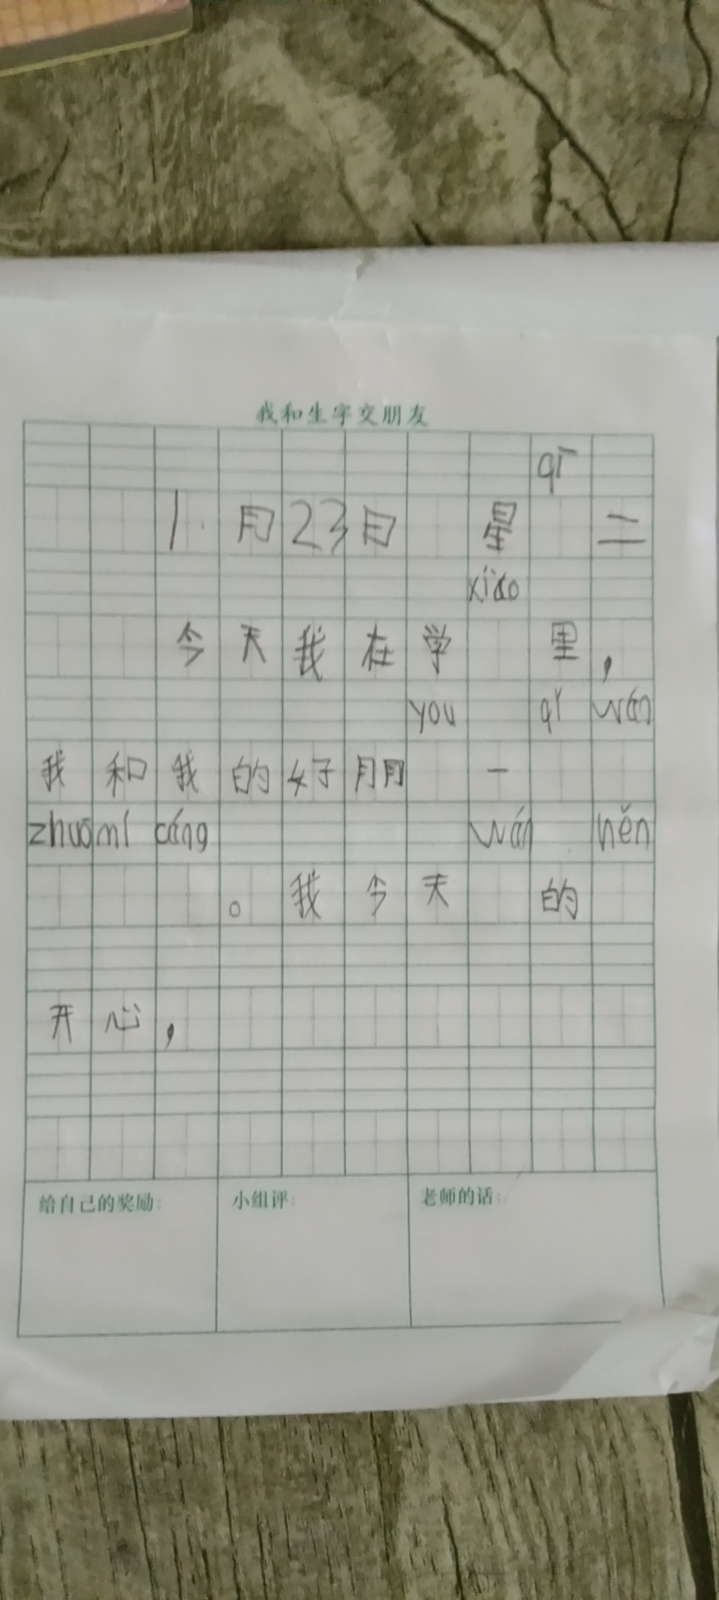 我和生字交朋友
qī
1月23日 星 二
xiào
今天我在学 里，
you qǐ wán
我和我的好朋 一
zhuō mí cáng wán hěn
。我今天 的
开心，
给自己的奖励：
小组评：
老师的话：